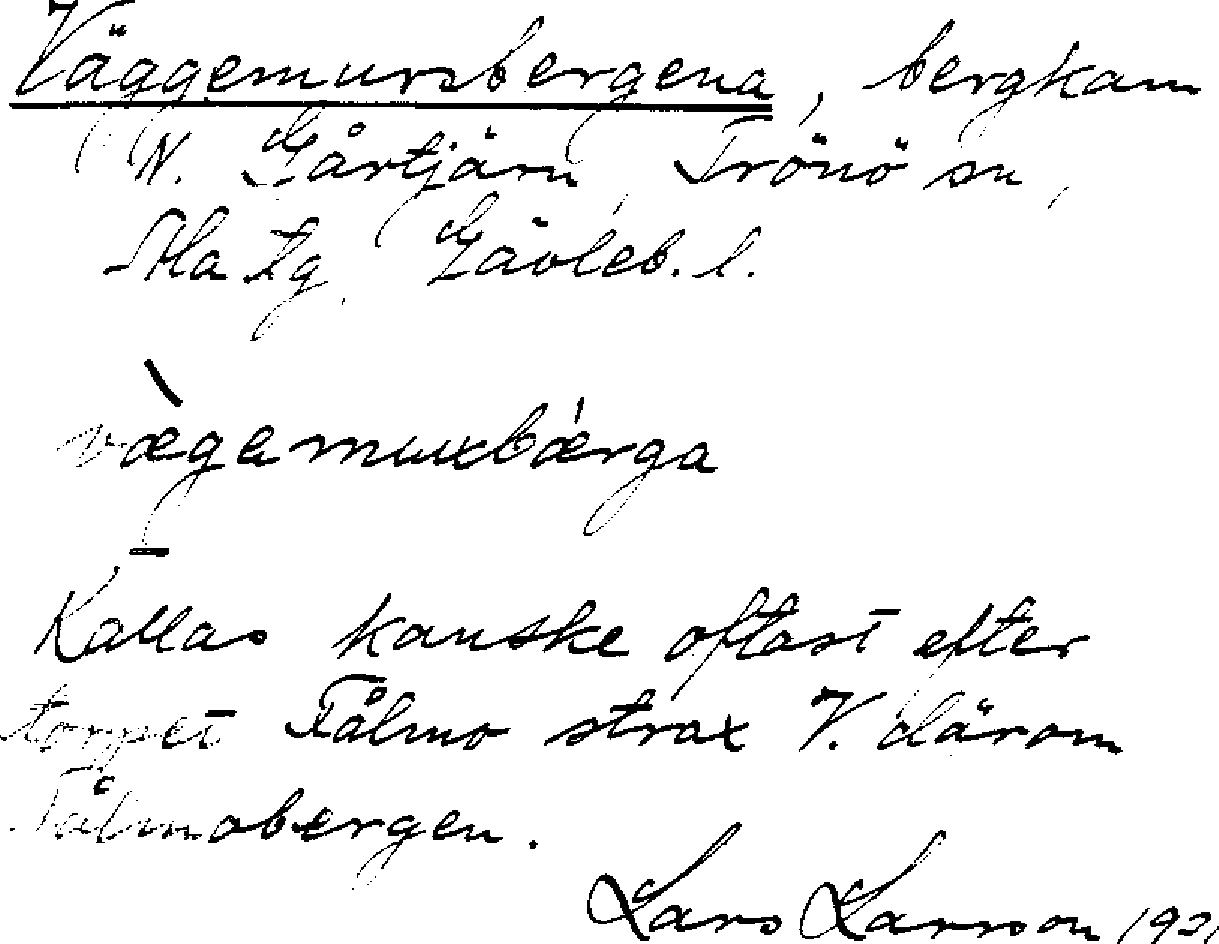 Väggemursbergena, bergkam
N. Gårtjärn, Trönö sn,
Ala tg, Gävleb. l.
vægamuxbærga
Kallas kanske oftast efter
torpet Fålmo strax V. därom
Fålmobergen.
Lars Larsson 192